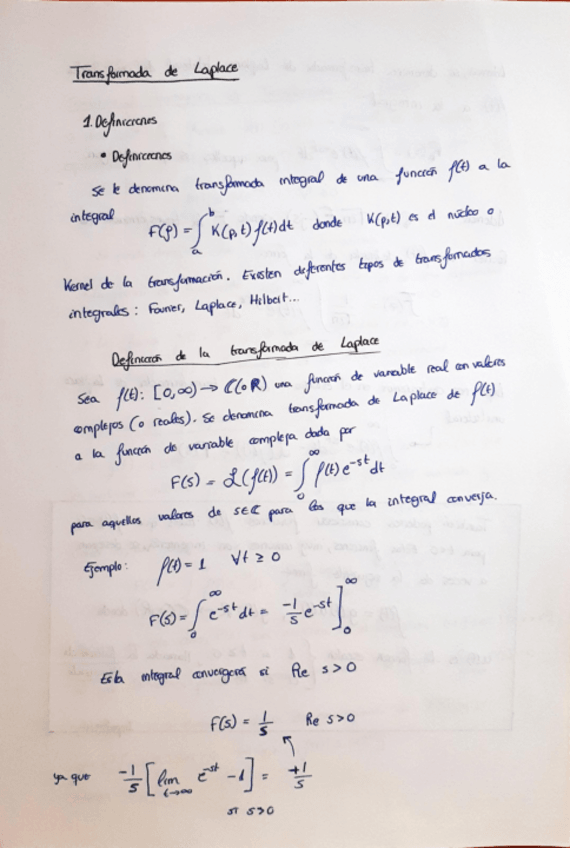 Transformada de Laplace
1. Definiciones
• Definiciones
Se le denomina transformada integral de una función f(t) a la
integral
F(p) = ∫_a^b K(p,t) f(t) dt donde K(p,t) es el núcleo o
Kernel de la transformación. Existen diferentes tipos de transformadas
integrales: Fourier, Laplace, Hilbert...
Definición de la transformada de Laplace
Sea f(t): [0,∞) → ℂ (o ℝ) una función de variable real con valores
complejos (o reales). Se denomina transformada de Laplace de f(t)
a la función de variable compleja dada por
F(s) = ℒ(f(t)) = ∫_0^∞ f(t) e^{-st} dt
para aquellos valores de s∈ℂ para los que la integral converja.
Ejemplo: f(t) = 1 ∀t ≥ 0
F(s) = ∫_0^∞ e^{-st} dt = -1/s e^{-st} ]_0^∞
Esta integral convergerá si Re s>0
F(s) = 1/s Re s>0
ya que -1/s [lim_{t→∞} e^{-st} - 1] = +1/s
si s>0